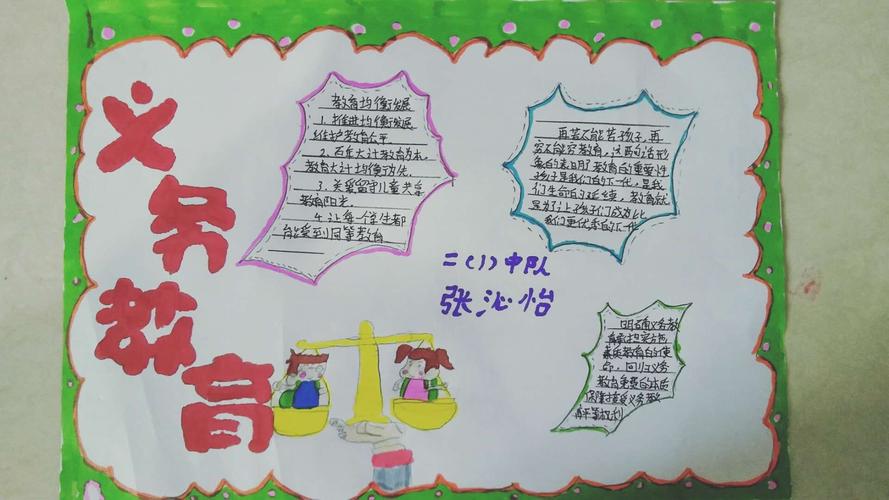 义务教育
教育均衡发展
1. 推进均衡发展
维护教育公平.
2. 百年大计教育为本.
教育大计均衡为先.
3. 关爱留守儿童共享
教育阳光.
4. 让每个学生都
能受到同等教育
再苦不能苦孩子,再
穷不能穷教育,这两句话形
象的表明了教育的重要性
孩子是我们的下一代,是我
们生命的延续,教育就
是为了让孩子们成为比
我们更优秀的下一代
二(1)中队
张沁怡
明确义务教
育承担实施
素质教育的使
命,回归义务
教育免费的本质
保障接受义务教
育平等权利